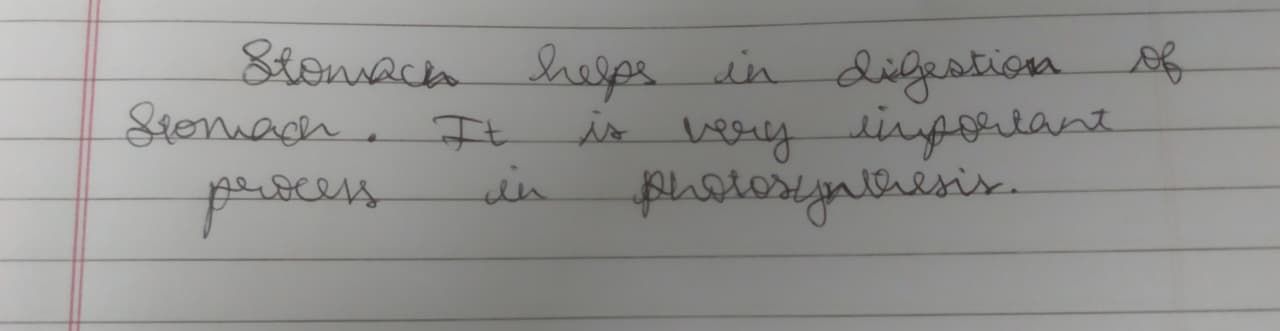 Stomach helps in digestion of
Stomach. It is very important
process in photosynthesis.